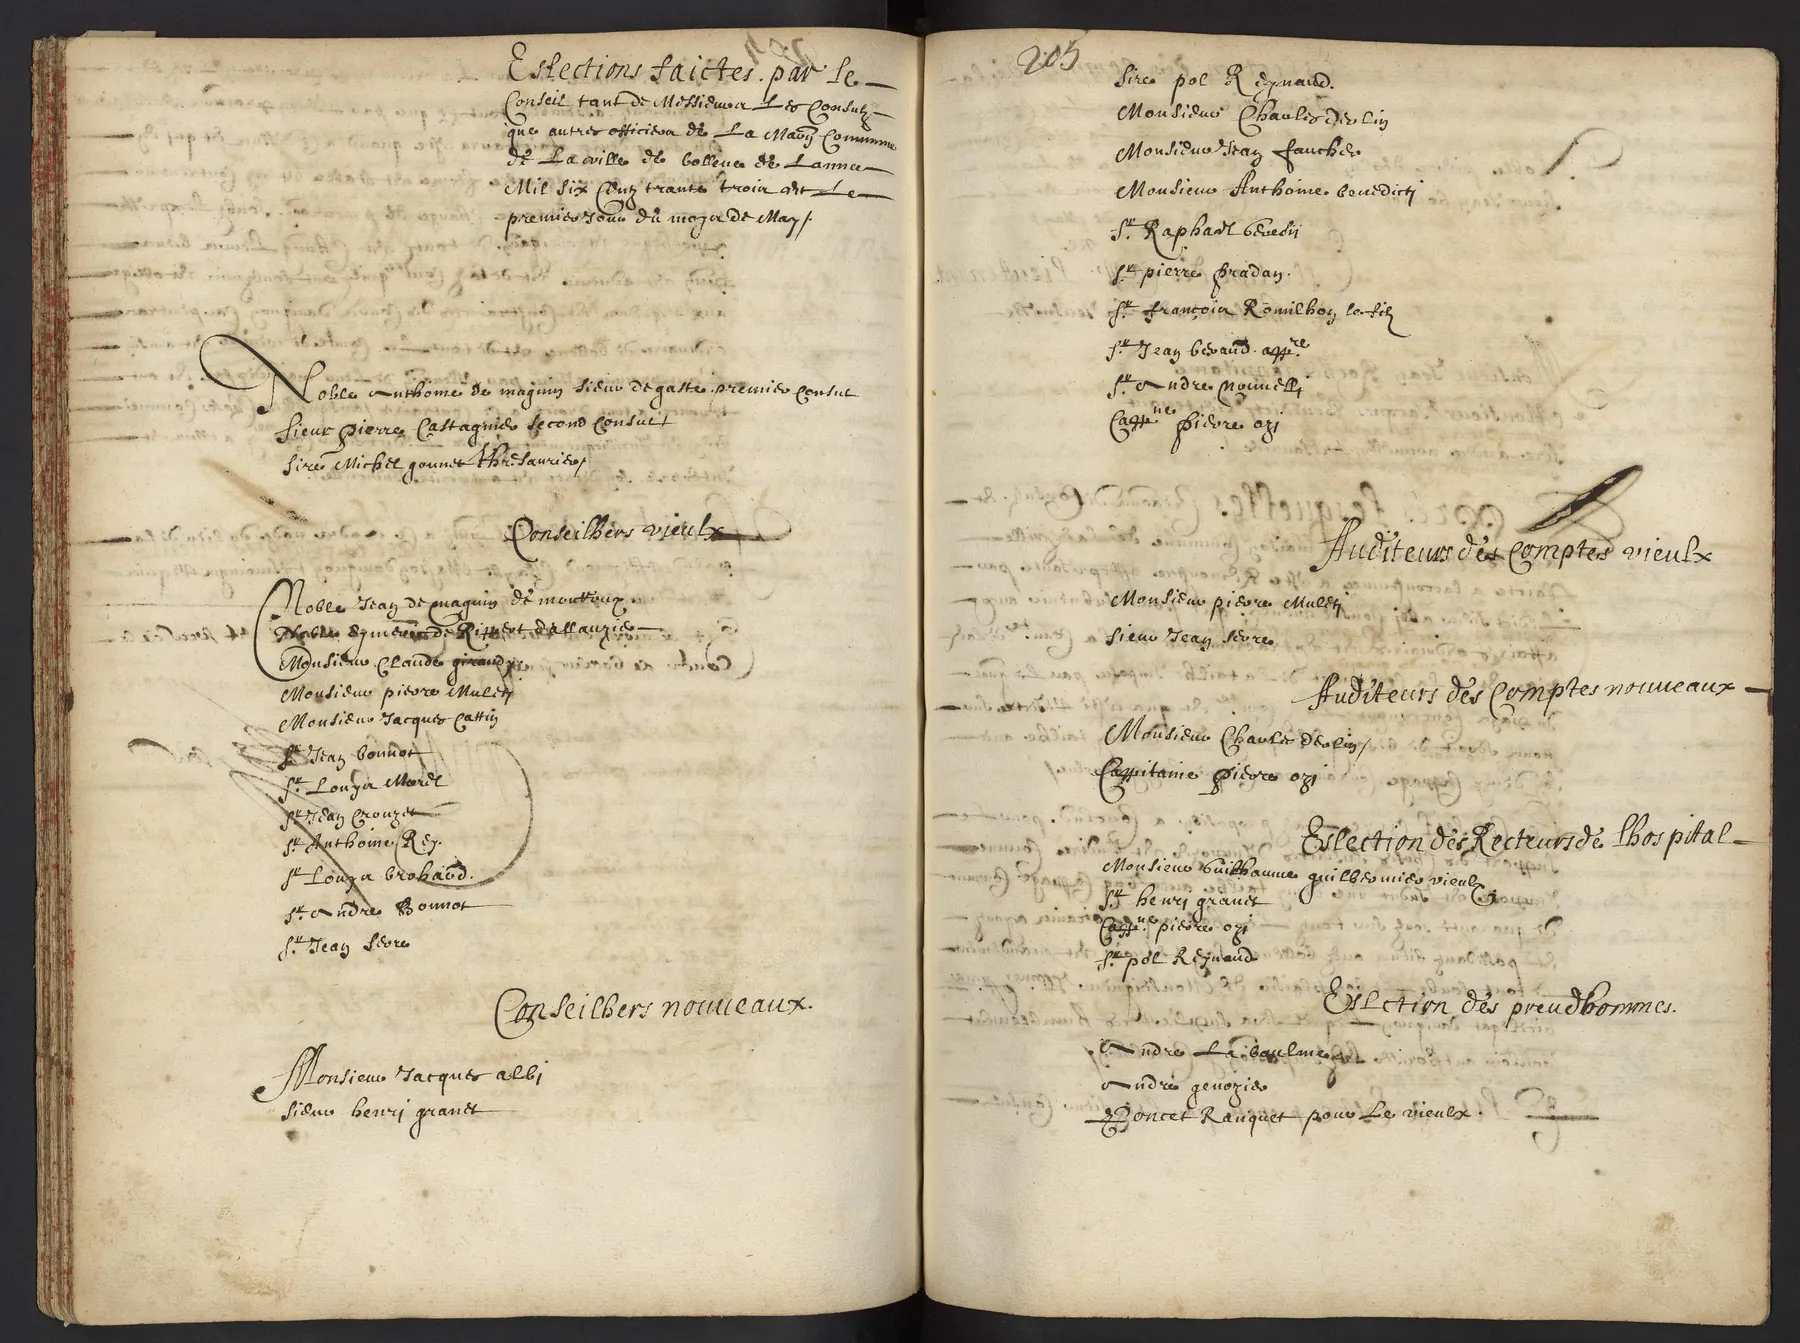 Eslections faictes par le
Conseil tant de Messieurs Les Consulz
que autres officiers de La Maison Commune
de La ville de bollene de Lannee
Mil six Cens trante trois et Le
premier Jour du moys de May /
Noble Anthoine de magnin sieur de gaste premier Consul
sieur pierre Castagnier second Consult
sire Michel gounet thresaurier /
Conseilhers vieulx
Noble Jean de magnin de
Noble de Rippert
Monsieur Claude girardz
Monsieur pierre Muletj
Monsieur Jacques Cattin
Sr Jean bonnot
Sr Louys Morel
Sr Jean Crouzet
Sr Anthoine Rey.
Sr Louys brohard.
Sr Andre Bonnot
Sr Jean serre
Conseilhers nouueaux.
Monsieur Jacques albj
sieur henrj granet
205
sire pol Reynaud.
Monsieur Charles derlin
Monsieur Jean faucher
Monsieur Anthoine benedictj
Sr Raphael
Sr pierre pradan.
Sr françois Romilhon le filz
Sr Jean beraud appre
Sr Andre
Cappne pierre ozj
Auditeurs des Comptes vieulx
Monsieur pierre Muletj
sieur Jean serre
Auditeurs des Comptes nouueaux
Monsieur Charles derlin /
Cappitaine pierre ozj
Eslection des Recteurs de lhospital
Monsieur Guilhaume guilhermier vieulx
Sr henrj granet
Cappne pierre ozj
Sr pol Reynaud
Eslection des preudhommes.
Andre Labaulme
Andre genozier
Poncet Ranquet pour Le vieulx.